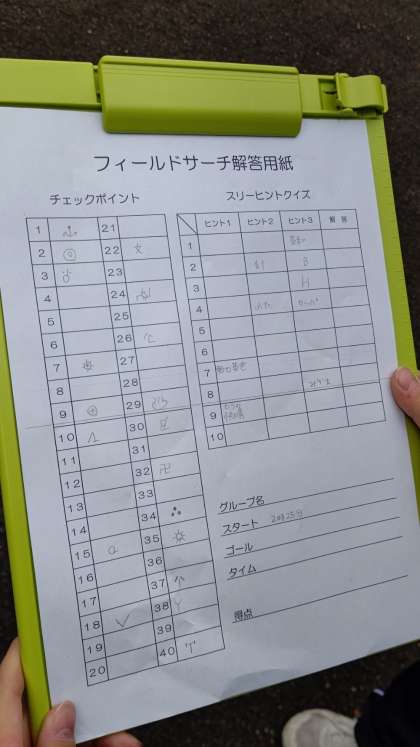 フィールドサーチ解答用紙
チェックポイント
スリーヒントクイズ
1 21
2 22 文
3 23
4 24
5 25
6 26
7 27
8 28
9 29
10 30
11 31
12 32 卍
13 33
14 34
15 35
16 36
17 37
18 38
19 39
20 40
ヒント1 ヒント2 ヒント3 解答
1
2 B
3 H
4
5
6
7
8
9
10
グループ名
スタート 2時25分
ゴール
タイム
得点